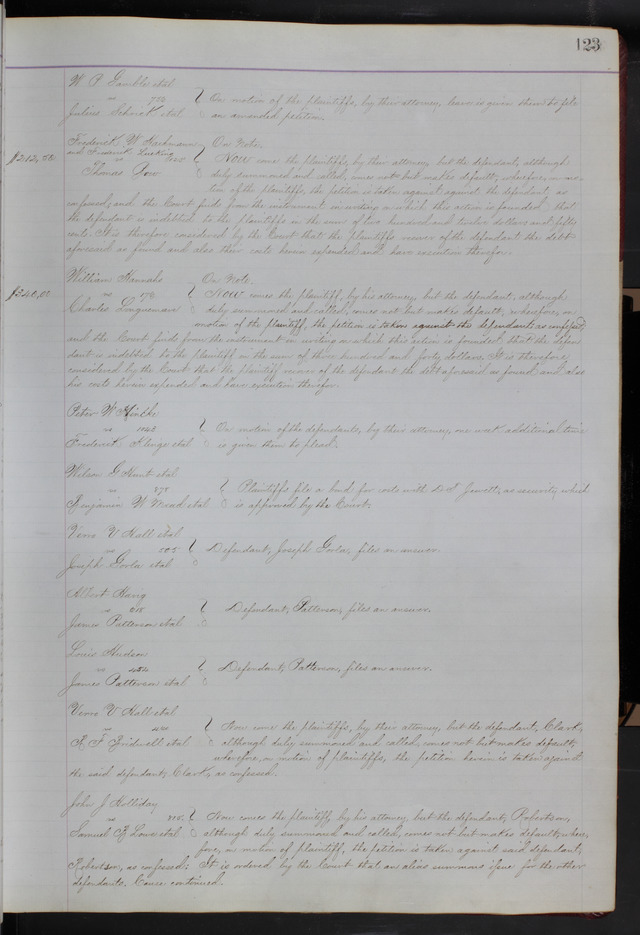 123
W P Gamble et al
vs 772 On motion of the plaintiffs, by their attorney, leave is given them to file
Julius Schrick et al an amended petition.
Frederick W Hackmann On Note.
and Frederick Lucking
$212,50 vs Now come the plaintiffs, by their attorney, but the defendant, although
Thomas duly summoned and called, comes not but makes default; wherefore, on mo-
tion of the plaintiffs, the petition is taken against against, the defendant, as
confessed, and the Court finds from the instrument in writing on which this action is founded, that
the defendant is indebted to the plaintiffs in the sum of two hundred and twelve dollars and fifty
cents. It is therefore considered by the Court that the plaintiffs recover of the defendant the debt
aforesaid as found and also their costs herein expended and have execution therefor.
William Hannahs On Note.
$340,00 vs Now comes the plaintiff, by his attorney, but the defendant, although
Charles Lingueman duly summoned and called, comes not but makes default; wherefore, on
motion of the plaintiff, the petition is taken against the defendant, as confessed,
and the Court finds from the instrument in writing on which this action is founded that the defen-
dant is indebted to the plaintiff in the sum of three hundred and forty dollars. It is therefore,
considered by the Court that the plaintiff recover of the defendant the debt aforesaid as found and also
his costs herein expended and have execution therefor.
Peter W
vs On motion of the defendants, by their attorney, one week additional time
Frederick et al is given them to plead.
Wilson G Hunt et al
vs Plaintiffs file a bond for costs with D T Jewett, as security which
Benjamin W et al is approved by the Court.
Verro V Hall et al
vs 505 Defendant, Joseph Gorla, files an answer.
Joseph Gorla et al
Albert Harig
vs Defendant, Patterson, files an answer.
James Patterson et al
Louis Hudson
vs Defendant, Patterson, files an answer.
James Patterson et al
Verro V Hall et al
vs Now come the plaintiffs, by their attorney, but the defendant, Clark,
F. F. Bridwell et al although duly summoned and called, comes not but makes default;
wherefore, on motion of plaintiffs, the petition herein is taken against
the said defendant, Clark, as confessed.
John J Holliday
vs Now comes the plaintiff, by his attorney, but the defendant, Robertson,
Samuel Lowe et al although duly summoned and called, comes not but makes default; where-
fore, on motion of plaintiff, the petition is taken against said defendant,
Robertson, as confessed. It is ordered by the Court that an alias summons issue for the other
defendants. Cause continued.